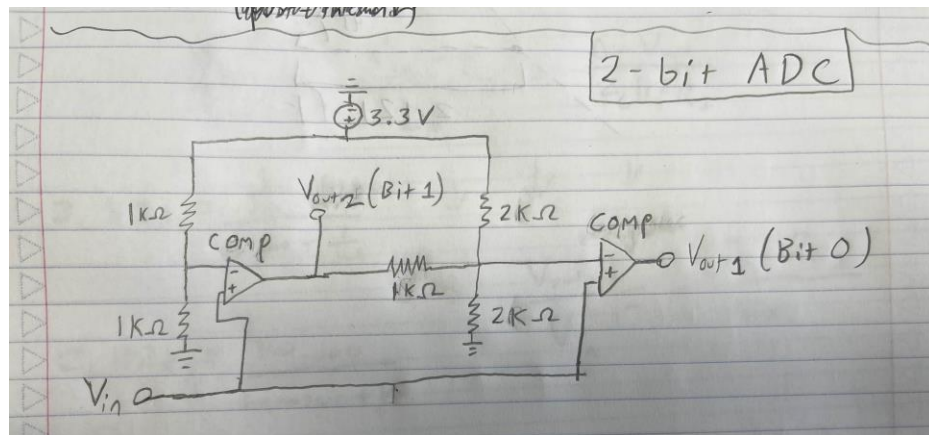 2-bit ADC
3.3V
Vout2 (Bit 1)
1KΩ
2KΩ
COMP
COMP
Vout1 (Bit 0)
1KΩ
1KΩ
2KΩ
Vin